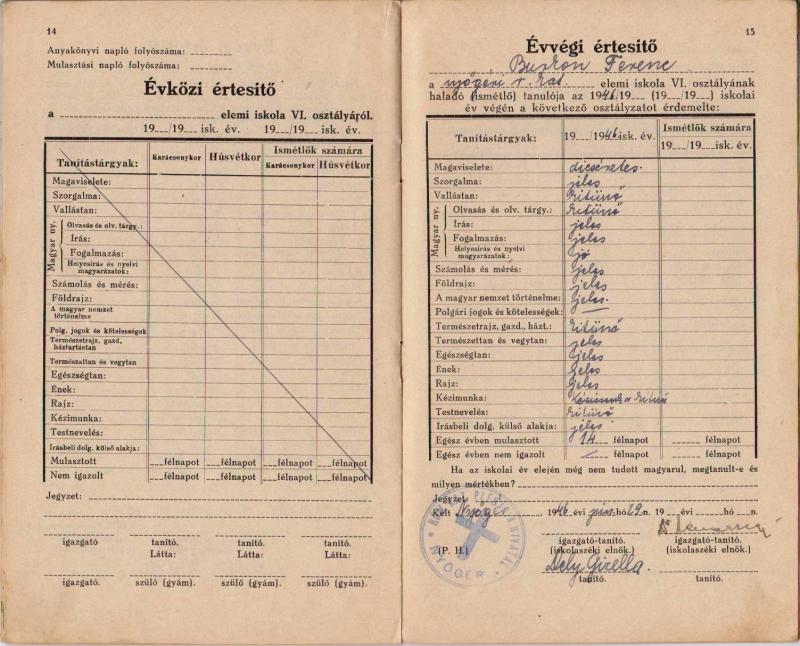 14
Anyakönyvi napló folyószáma:
Mulasztási napló folyószáma:
Évközi értesitő
a elemi iskola VI. osztályáról.
19 /19 isk. év. 19 /19 isk. év.
Tanítástárgyak: Karácsonykor Húsvétkor Ismétlők számára
Karácsonykor Húsvétkor
Magaviselete:
Szorgalma:
Vallástan:
Magyar ny.
Olvasás és olv. tárgy.:
Írás:
Fogalmazás:
Helyesírás és nyelvi magyarázatok:
Számolás és mérés:
Földrajz:
A magyar nemzet történelme
Polg. jogok és kötelességek
Természetrajz, gazd, háztartástan
Természattan és vegytan
Egészségtan:
Ének:
Rajz:
Kézimunka:
Testnevelés:
Irásbeli dolg. külső alakja:
Mulasztott félnapot félnapot félnapot félnapot
Nem igazolt félnapot félnapot félnapot félnapot
Jegyzet:
igazgató tanító. tanító. tanító.
Látta: Látta:
igazgató. szülő (gyám). igazgató. szülő (gyám).
15
Évvégi értesitő
Burkon Ferenc
a nyőgéri r. kat. elemi iskola VI. osztályának
haladó (ismétlő) tanulója az 1946/19 (19 /19 ) iskolai
év végén a következő osztályzatot érdemelte:
Tanitástárgyak: 19 /1946 isk. év. Ismétlők számára
19 /19 isk. év.
Magaviselete: dicséretes.
Szorgalma: jeles
Vallástan: kitünő
Magyar ny.
Olvasás és olv. tárgy.: kitünő
Írás: jeles
Fogalmazás: jeles
Helyesírás és nyelvi magyarázatok: jó
Számolás és mérés: jeles
Földrajz: jeles
A magyar nemzet történelme: jeles.
Polgári jogok és kötelességek: —
Természetrajz, gazd., házt.: kitünő
Természettan és vegytan: jeles
Egészségtan: jeles
Ének: jeles
Rajz: jeles
Kézimunka: Kézimunka kitünő
Testnevelés: kitünő
Irásbeli dolg. külső alakja: jeles
Egész évben mulasztott 14 félnapot félnapot
Egész évben nem igazolt — félnapot félnapot
Ha az iskolai év elején még nem tudott magyarul, megtanult-e és
milyen mértékben?
Jegyzet:
Kelt Nyőgér, 1946 évi jún. hó 29 n. 19 évi hó n.
igazgató-tanító igazgató-tanító.
(P. H.) (iskolaszéki elnök). (iskolaszéki elnök).
Dely Gizella.
tanító. tanító.
NYŐGÉR